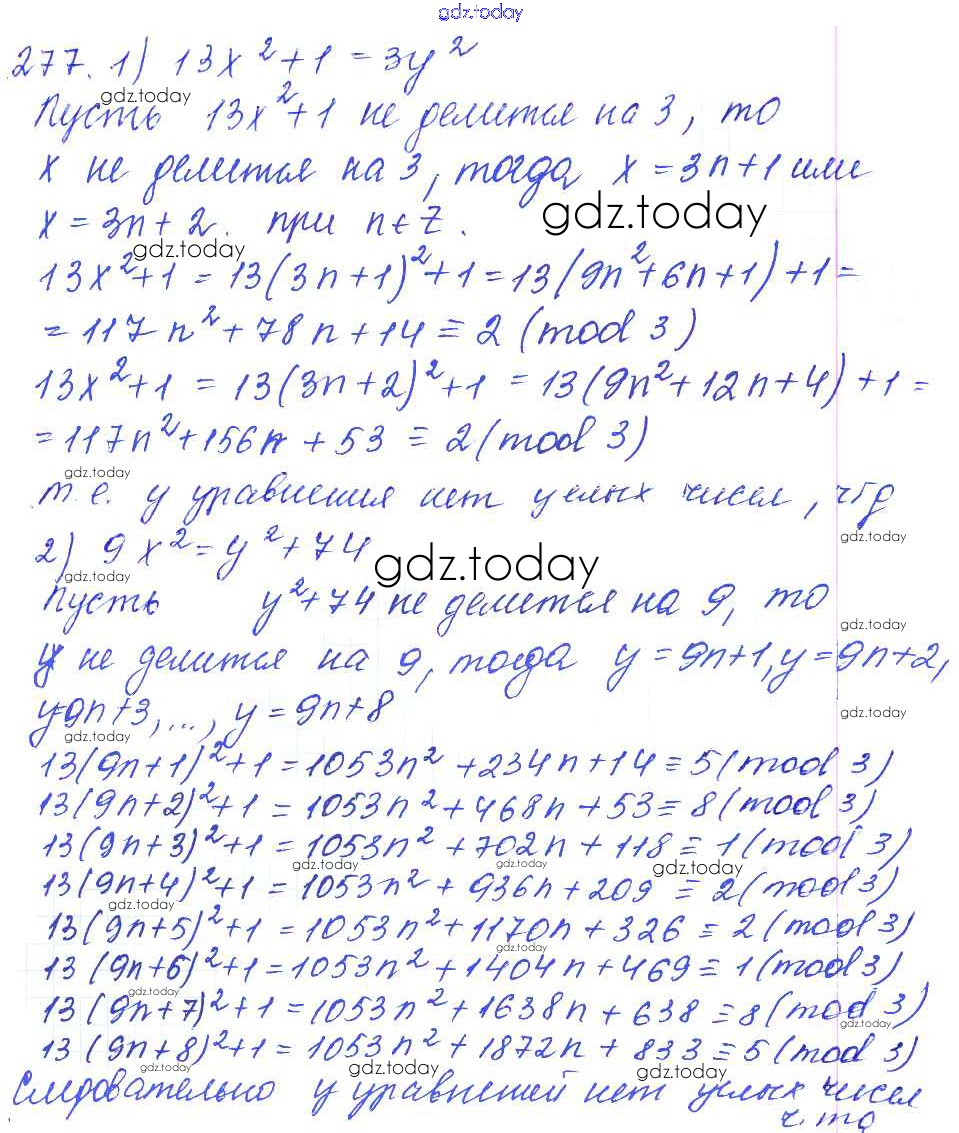 gdz.today
277. 1) 13x²+1 = 3y²
gdz.today
Пусть 13x²+1 не делится на 3, то
x не делится на 3, тогда x = 3n+1 или
x = 3n+2. при n ∈ Z.
gdz.today
gdz.today
13x²+1 = 13(3n+1)²+1 = 13(9n²+6n+1)+1 =
= 117n²+78n+14 ≡ 2 (mod 3)
13x²+1 = 13(3n+2)²+1 = 13(9n²+12n+4)+1 =
= 117n²+156n+53 ≡ 2 (mod 3)
gdz.today
т.е. у уравнения нет целых чисел, чтд
gdz.today
2) 9x² = y²+74
gdz.today
gdz.today
Пусть y²+74 не делится на 9, то
gdz.today
y не делится на 9, тогда y = 9n+1, y = 9n+2,
y=9n+3, ..., y = 9n+8
gdz.today
gdz.today
13(9n+1)²+1 = 1053n²+234n+14 ≡ 5 (mod 3)
13(9n+2)²+1 = 1053n²+468n+53 ≡ 8 (mod 3)
13(9n+3)²+1 = 1053n²+702n+118 ≡ 1 (mod 3)
gdz.today
gdz.today
gdz.today
13(9n+4)²+1 = 1053n²+936n+209 ≡ 2 (mod 3)
gdz.today
13(9n+5)²+1 = 1053n²+1170n+326 ≡ 2 (mod 3)
gdz.today
13(9n+6)²+1 = 1053n²+1404n+469 ≡ 1 (mod 3)
gdz.today
13(9n+7)²+1 = 1053n²+1638n+638 ≡ 8 (mod 3)
gdz.today
13(9n+8)²+1 = 1053n²+1872n+833 ≡ 5 (mod 3)
gdz.today
gdz.today
gdz.today
Следовательно у уравнений нет целых чисел
ч.тд